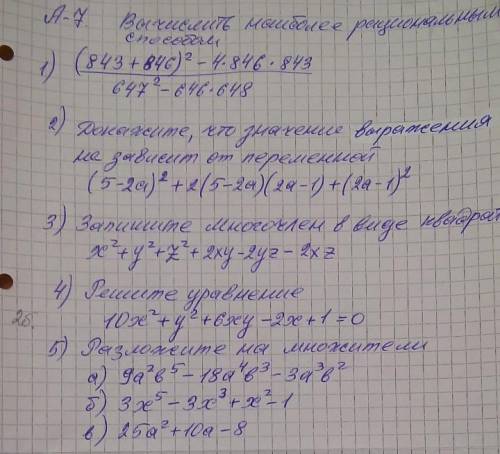 А-7 Вычислить наиболее рациональным
способом
1) (843 + 846)² - 4·846·843
647² - 646·648
2) Докажите, что значение выражения
не зависит от переменной
(5-2a)² + 2(5-2a)(2a-1) + (2a-1)²
3) Запишите многочлен в виде квадрат
x² + y² + z² + 2xy - 2yz - 2xz
4) Решите уравнение
26. 10x² + y² + 6xy - 2x + 1 = 0
5) Разложите на множители
а) 9a²b⁵ - 18a⁴b³ - 3a³b²
б) 3x⁵ - 3x³ + x² - 1
в) 25a² + 10a - 8